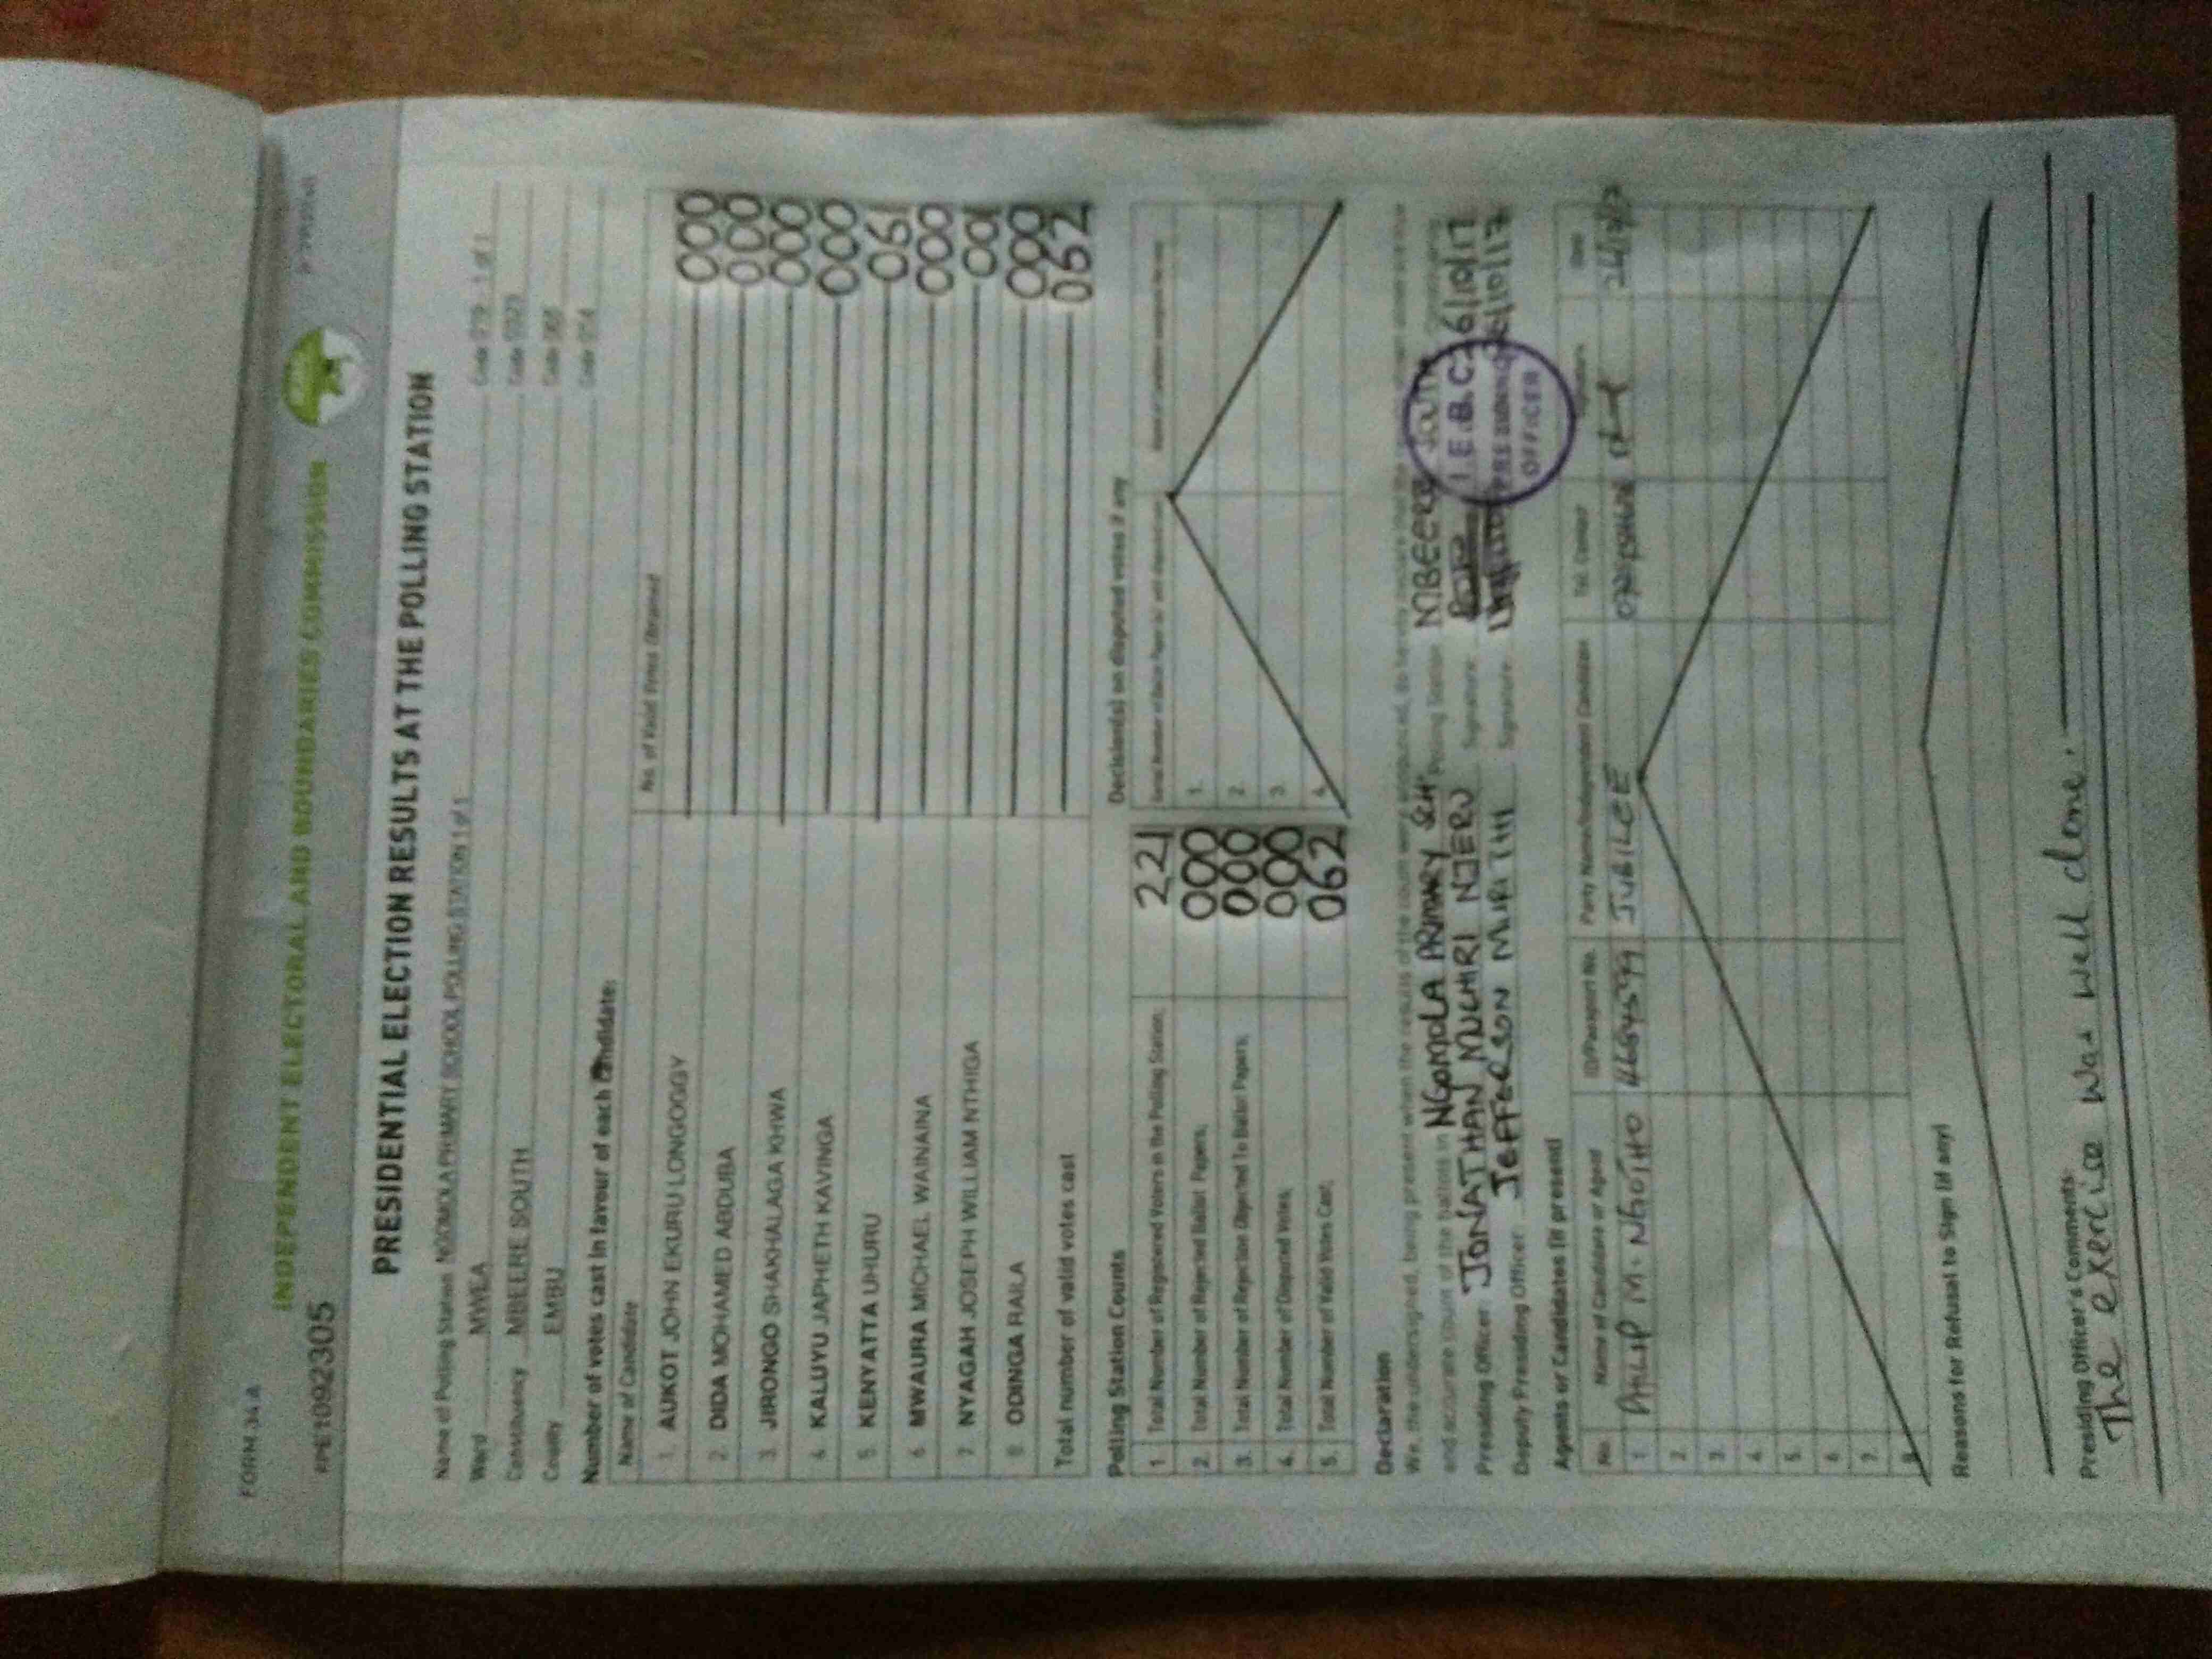 FORM 34 A
INDEPENDENT ELECTORAL AND BOUNDARIES COMMISSION
PRESIDENTIAL ELECTION RESULTS AT THE POLLING STATION
Name of Polling Station NGOMOLA PRIMARY SCHOOL POLLING STATION 1 of 1 Code 1 of 1
Ward MWEA Code
Constituency MBEERE SOUTH Code
County EMBU Code 014
Number of votes cast in favour of each Candidate:
Name of Candidate No. of Valid Votes Obtained
1. AUKOT JOHN EKURU LONGOGGY 000
2. DIDA MOHAMED ABDUBA 000
3. JIRONGO SHAKHALAGA KHWA 000
4. KALUYU JAPHETH KAVINGA 000
5. KENYATTA UHURU 061
6. MWAURA MICHAEL WAINAINA 000
7. NYAGAH JOSEPH WILLIAM NTHIGA 001
8. ODINGA RAILA 000
Total number of valid votes cast 062
Polling Station Counts
1. Total Number of Registered Voters in the Polling Station; 221
2. Total Number of Rejected Ballot Papers; 000
3. Total Number of Rejection Objected To Ballot Papers; 000
4. Total Number of Disputed Votes; 000
5. Total Number of Valid Votes Cast; 062
Decision(s) on disputed votes if any
1.
2.
3.
4.
Declaration
We, the undersigned, being present when the results of the count were announced, do hereby declare that the
and accurate count of the ballots in NGOMOLA PRIMARY SCH Polling Station MBEERE SOUTH
Presiding Officer: JONATHAN MUCHIRI NJERU Signature: 26/10/17
Deputy Presiding Officer: JEFFERSON MURIITHI Signature: 26/10/17
I.E.B.C.
PRESIDING
OFFICER
Agents or Candidates (if present)
No. Name of Candidate or Agent ID/Passport No. Party Name/Independent Candidate Tel. Contact Signature Date
1. PHILIP M. NGOTHO JUBILEE
2.
3.
4.
5.
6.
7.
8.
Reasons for Refusal to Sign (if any)
Presiding Officer's Comments
The exercise was well done.